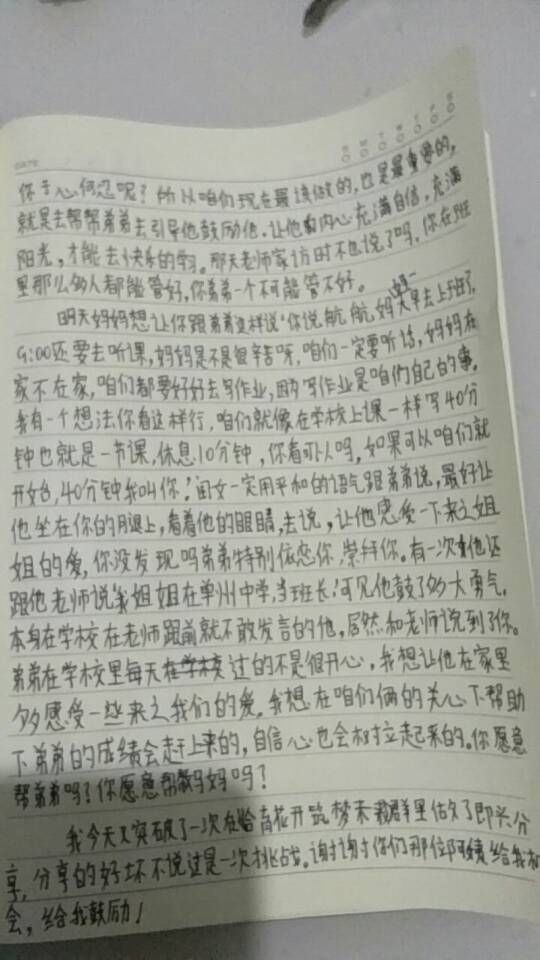 DATE
你于心何忍呢?所以咱们现在最该做的,也是最重要的,
就是去帮帮弟弟去引导他鼓励他.让他内心充满自信,充满
阳光,才能去快乐的学习。那天老师家访时不也说了吗,你在班
里那么多人都能管好,你弟弟一个不可能管不好。
明天妈妈想让你跟弟弟这样说"你说航航妈妈一大早去上班了,
9:00还要去听课,妈妈是不是很辛苦呀,咱们一定要听话,妈妈在
家不在家,咱们都要好好去写作业,因为写作业是咱们自己的事。
我有一个想法你看这样行,咱们就像在学校上课一样写40分
钟也就是一节课,休息10分钟,你看可以吗,如果可以咱们就
开始,40分钟我叫你!闰文一定用平和的语气跟弟弟说,最好让
他坐在你的腿上,看着他的眼睛,去说,让他感受一下来之姐
姐的爱,你没发现吗弟弟特别依恋你,崇拜你。有一次他还
跟他老师说我姐姐在单州中学,当班长!可见他鼓了多大勇气,
本身在学校在老师跟前就不敢发言的他,居然和老师说到了你。
弟弟在学校里每天在学校过的不是很开心,我想让他在家里
多感受一些来之我们的爱。我想在咱们俩的关心下帮助
下弟弟的成绩会赶上来的,自信心也会树立起来的。你愿意
帮弟弟吗?你愿意帮妈妈吗?
我今天又突破了一次在给花开筑梦群里做了即兴分
享,分享的好坏不说这是一次挑战。谢谢你们那位阿姨给我机
会,给我鼓励!